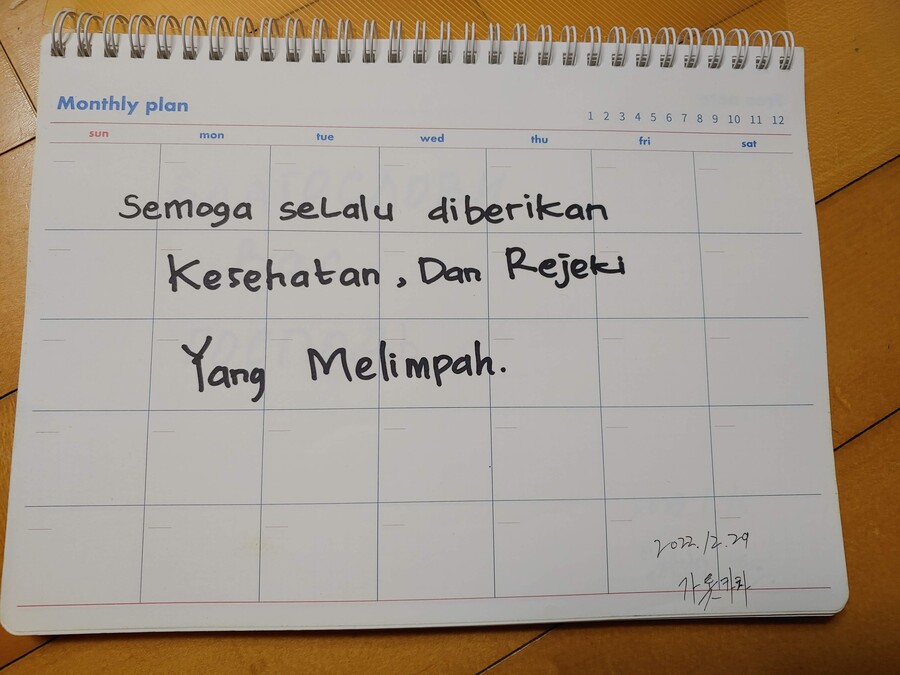 Monthly plan
1 2 3 4 5 6 7 8 9 10 11 12
sun mon tue wed thu fri sat
Semoga seLalu diberikan
Kesehatan, Dan Rejeki
Yang Melimpah.
2022.12.29